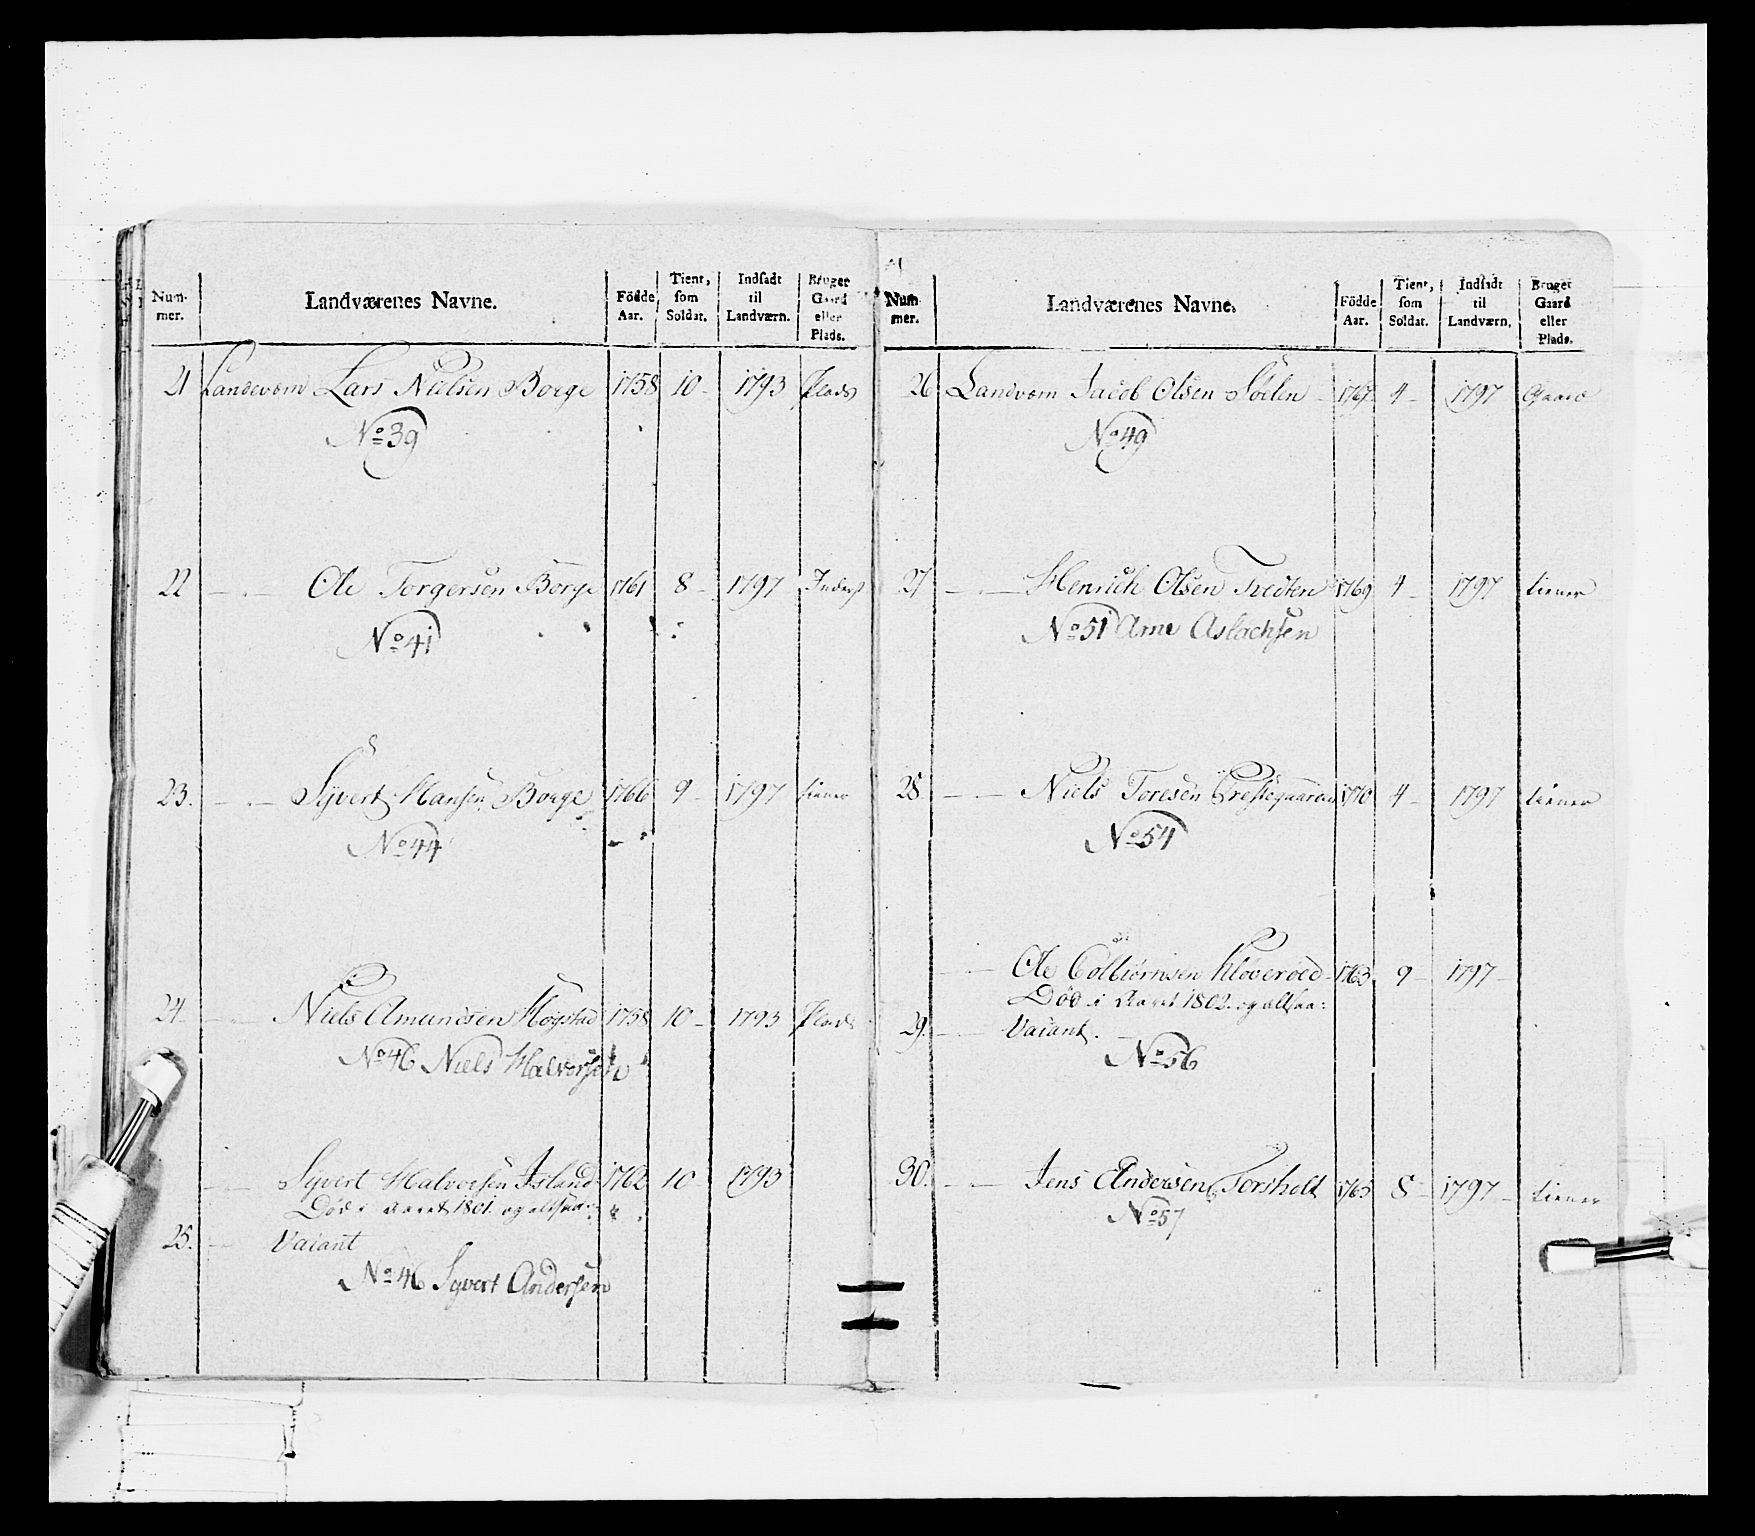 Num-mer. Landværenes Navne. Födde Aar. Tient, som Soldat. Indsadt til Landværn. Bruger Gaard eller Plads.
21 Landevorn Lars Nielsen Borge 1758 10 - 1793 Plads
No 39
22 Ole Torgersen Borge 1761 8 - 1797 Inderst
No 41
23. Syvert Hansen Borge 1766 9 - 1797 tiener
No 44
24 Niels Amundsen Høgstad 1758 10 - 1793 Plads
No 46 Niels Halvorsen
Syvert Halvorsen Island 1762 10 1793
Død i Aaret 1801. og altsaa:
25. Vacant
No 46 Syvert Andersen
Num-mer. Landværenes Navne. Födde Aar. Tient, som Soldat. Indsadt til Landværn. Bruger Gaard eller Plads.
26 Landvorn Jacob Olsen 1767 4 - 1797 Gaard
No 49
27 Henrich Olsen Tvedten 1769 4 - 1797 tiener
No 51 Arne Aslachsen
28 Niels Toresen Prestegaarden 1770 4 - 1797 tiener
No 54
Ole Colbiørnsen Kloverød 1763 9 - 1797 -
Død i Aaret 1802. og altsaa:
29. Vacant.
No 56
30. Jens Andersen Torsholt 1765 8 - 1797 - tiener
No 57